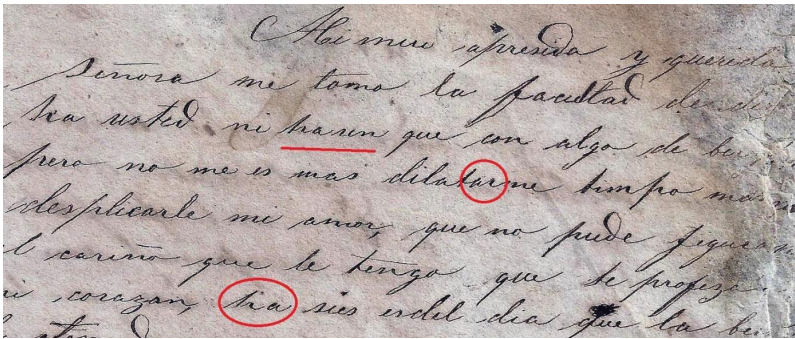 Mi mui apresida y querida
Señora me tomo la facultad de
ha usted ni hasen que con algo de
pero no me es mas dilatarme timpo
desplicarle me amor, que no pude
l cariño que le tengo que te profeza
corazan, ha sies esdel dia que la